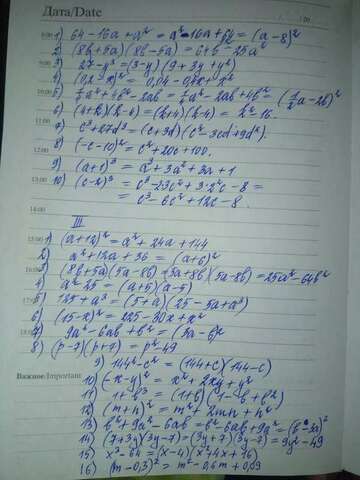 Дата/Date
8:00 1) 64 - 16a + a² = a² - 16a + 64 = (a - 8)²
2) (8b + 5a)(8b - 5a) = 64b² - 25a²
9:00 3) 27 - y³ = (3 - y)(9 + 3y + y²)
4) (0,2 - x)² = 0,04 - 0,4x + x²
10:00 5) ¼a² + 4b² - 2ab = ¼a² - 2ab + 4b² = (½a - 2b)²
6) (4 + k)(k - 4) = (k + 4)(k - 4) = k² - 16.
11:00 7) c³ + 27d³ = (c + 3d)(c² - 3cd + 9d²).
8) (-c - 10)² = c² + 20c + 100.
12:00 9) (a + 1)³ = a³ + 3a² + 3a + 1
13:00 10) (c - 2)³ = c³ - 2·3c² + 3·2²c - 8 =
= c³ - 6c² + 12c - 8.
14:00
III
15:00 1) (a + 12)² = a² + 24a + 144
2) a² + 12a + 36 = (a + 6)²
3) (8b + 5a)(5a - 8b) = (5a + 8b)(5a - 8b) = 25a² - 64b²
4) a² - 25 = (a + 5)(a - 5)
5) 125 + a³ = (5 + a)(25 - 5a + a²)
6) (15 - x)² = 225 - 30x + x²
7) 9a² - 6ab + b² = (3a - b)²
8) (p - 7)(p + 7) = p² - 49
9) 144 - c² = (144 + c)(144 - c)
Важно/Important
10) (-x - y)² = x² + 2xy + y²
11) 1 + b³ = (1 + b)(1 - b + b²)
12) (m + n)² = m² + 2mn + n²
13) b² + 9a² - 6ab = b² - 6ab + 9a² = (b - 3a)²
14) (7 + 3y)(3y - 7) = (3y + 7)(3y - 7) = 9y² - 49
15) x³ - 64 = (x - 4)(x² + 4x + 16)
16) (m - 0,3)² = m² - 0,6m + 0,09